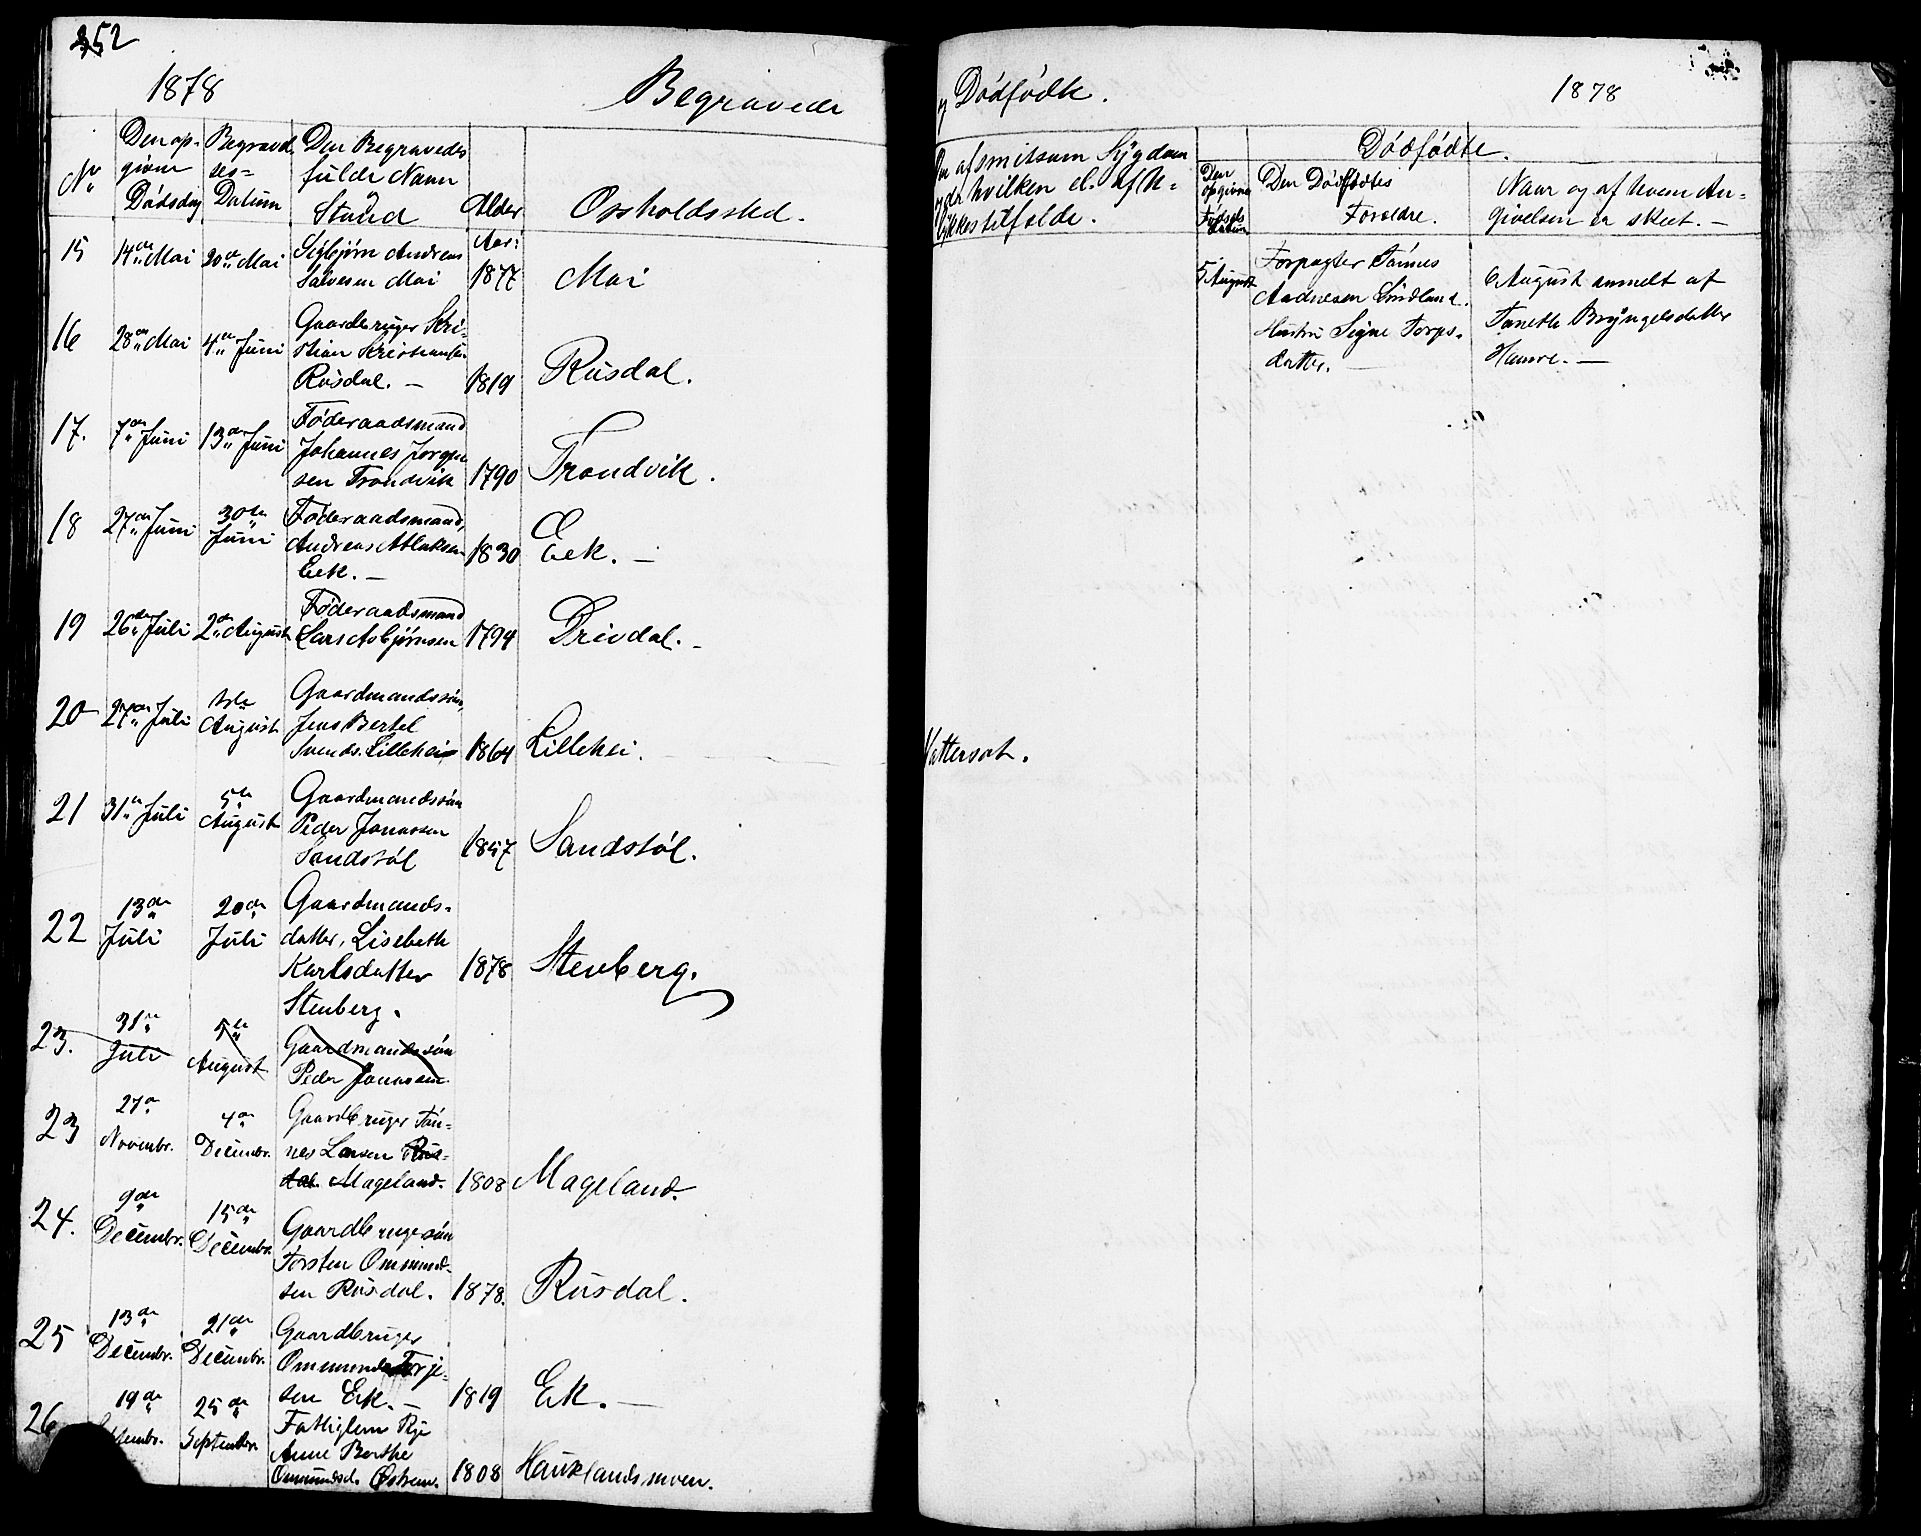 252
1878
Begravede
Den op-
givne
Dødsdag
Begravel
ses-
Datum
Den Begravedes
fulde Navn
Stand
No
Alder
Opholdssted.
15 14de Mai 20de Mai Sigbjørn Andreas
Salvesen Moi
Aar:
1877 Moi
16 28de Mai 4de Juni Gaardbruger Kri-
stian Kristiansen
Rusdal. — 1819 Rusdal.
17. 7de Juni 13de Juni Føderaadsmand
Johannes Jørgen
sen Trondvik 1790 Trondvik.
18 27de Juni 30te
Juni
Føderaadsmand,
Andreas Atlaksen
Eek. — 1830 Eek. —
19 26de Juli 2den August Føderaadsmand
Lars Asbjørnsen 1794 Drivdal. -
20 27de Juli 1ste
August
Gaardmandssøn,
Jens Bertel
Svends. Lillehei 1864 Lillehei.
21 31te Juli 5te
August
Gaardmandssøn
Peder Jonassen
Sandstøl 1857 Sandstøl.
22 13de
Juli
20de
Juli
Gaardmands-
datter, Lisebeth
Karlsdatter 1878 Stenberg.
Stenberg.
23. 31te
Juli
5te
August
Gaardmandssøn
Peder Jonassen
23 27de
Novembr.
4de
Decembr.
Gaardbruger Tøn-
nes Larsen Rus-
dal Mageland. 1808 Mageland.
24. 9de
Decembr.
15de
Decembr.
Gaardbrugersøn
Torsten Ommund-
sen Rusdal. 1878. Rusdal.
25 13de
Decembr.
21de
Decembr.
Gaardbruger
Ommund Torje-
sen Eek. — 1819 Ek. —
26 19de
Septembr.
25de
September
Fattiglem Pige
Anne Berthe
Ommundsd. 1808 Hauklandsmoen.
og Dødfødte.
1878
Om af smitsom Sygdom
og da hvilken el. af U-
lykkestilfælde.
Dødfødte.
Den
opgivne
Fødsels
datum
Den Dødfødtes
Forældre.
Naar og af hvem An-
givelsen er skeet. —
5 August
Forpagter Tønnes
Aadnesen Lindland.
Hustru Signe Torps-
datter.
6 August anmelt af
Tonette Bryngelsdatter
Hamre. —
Vattersot.